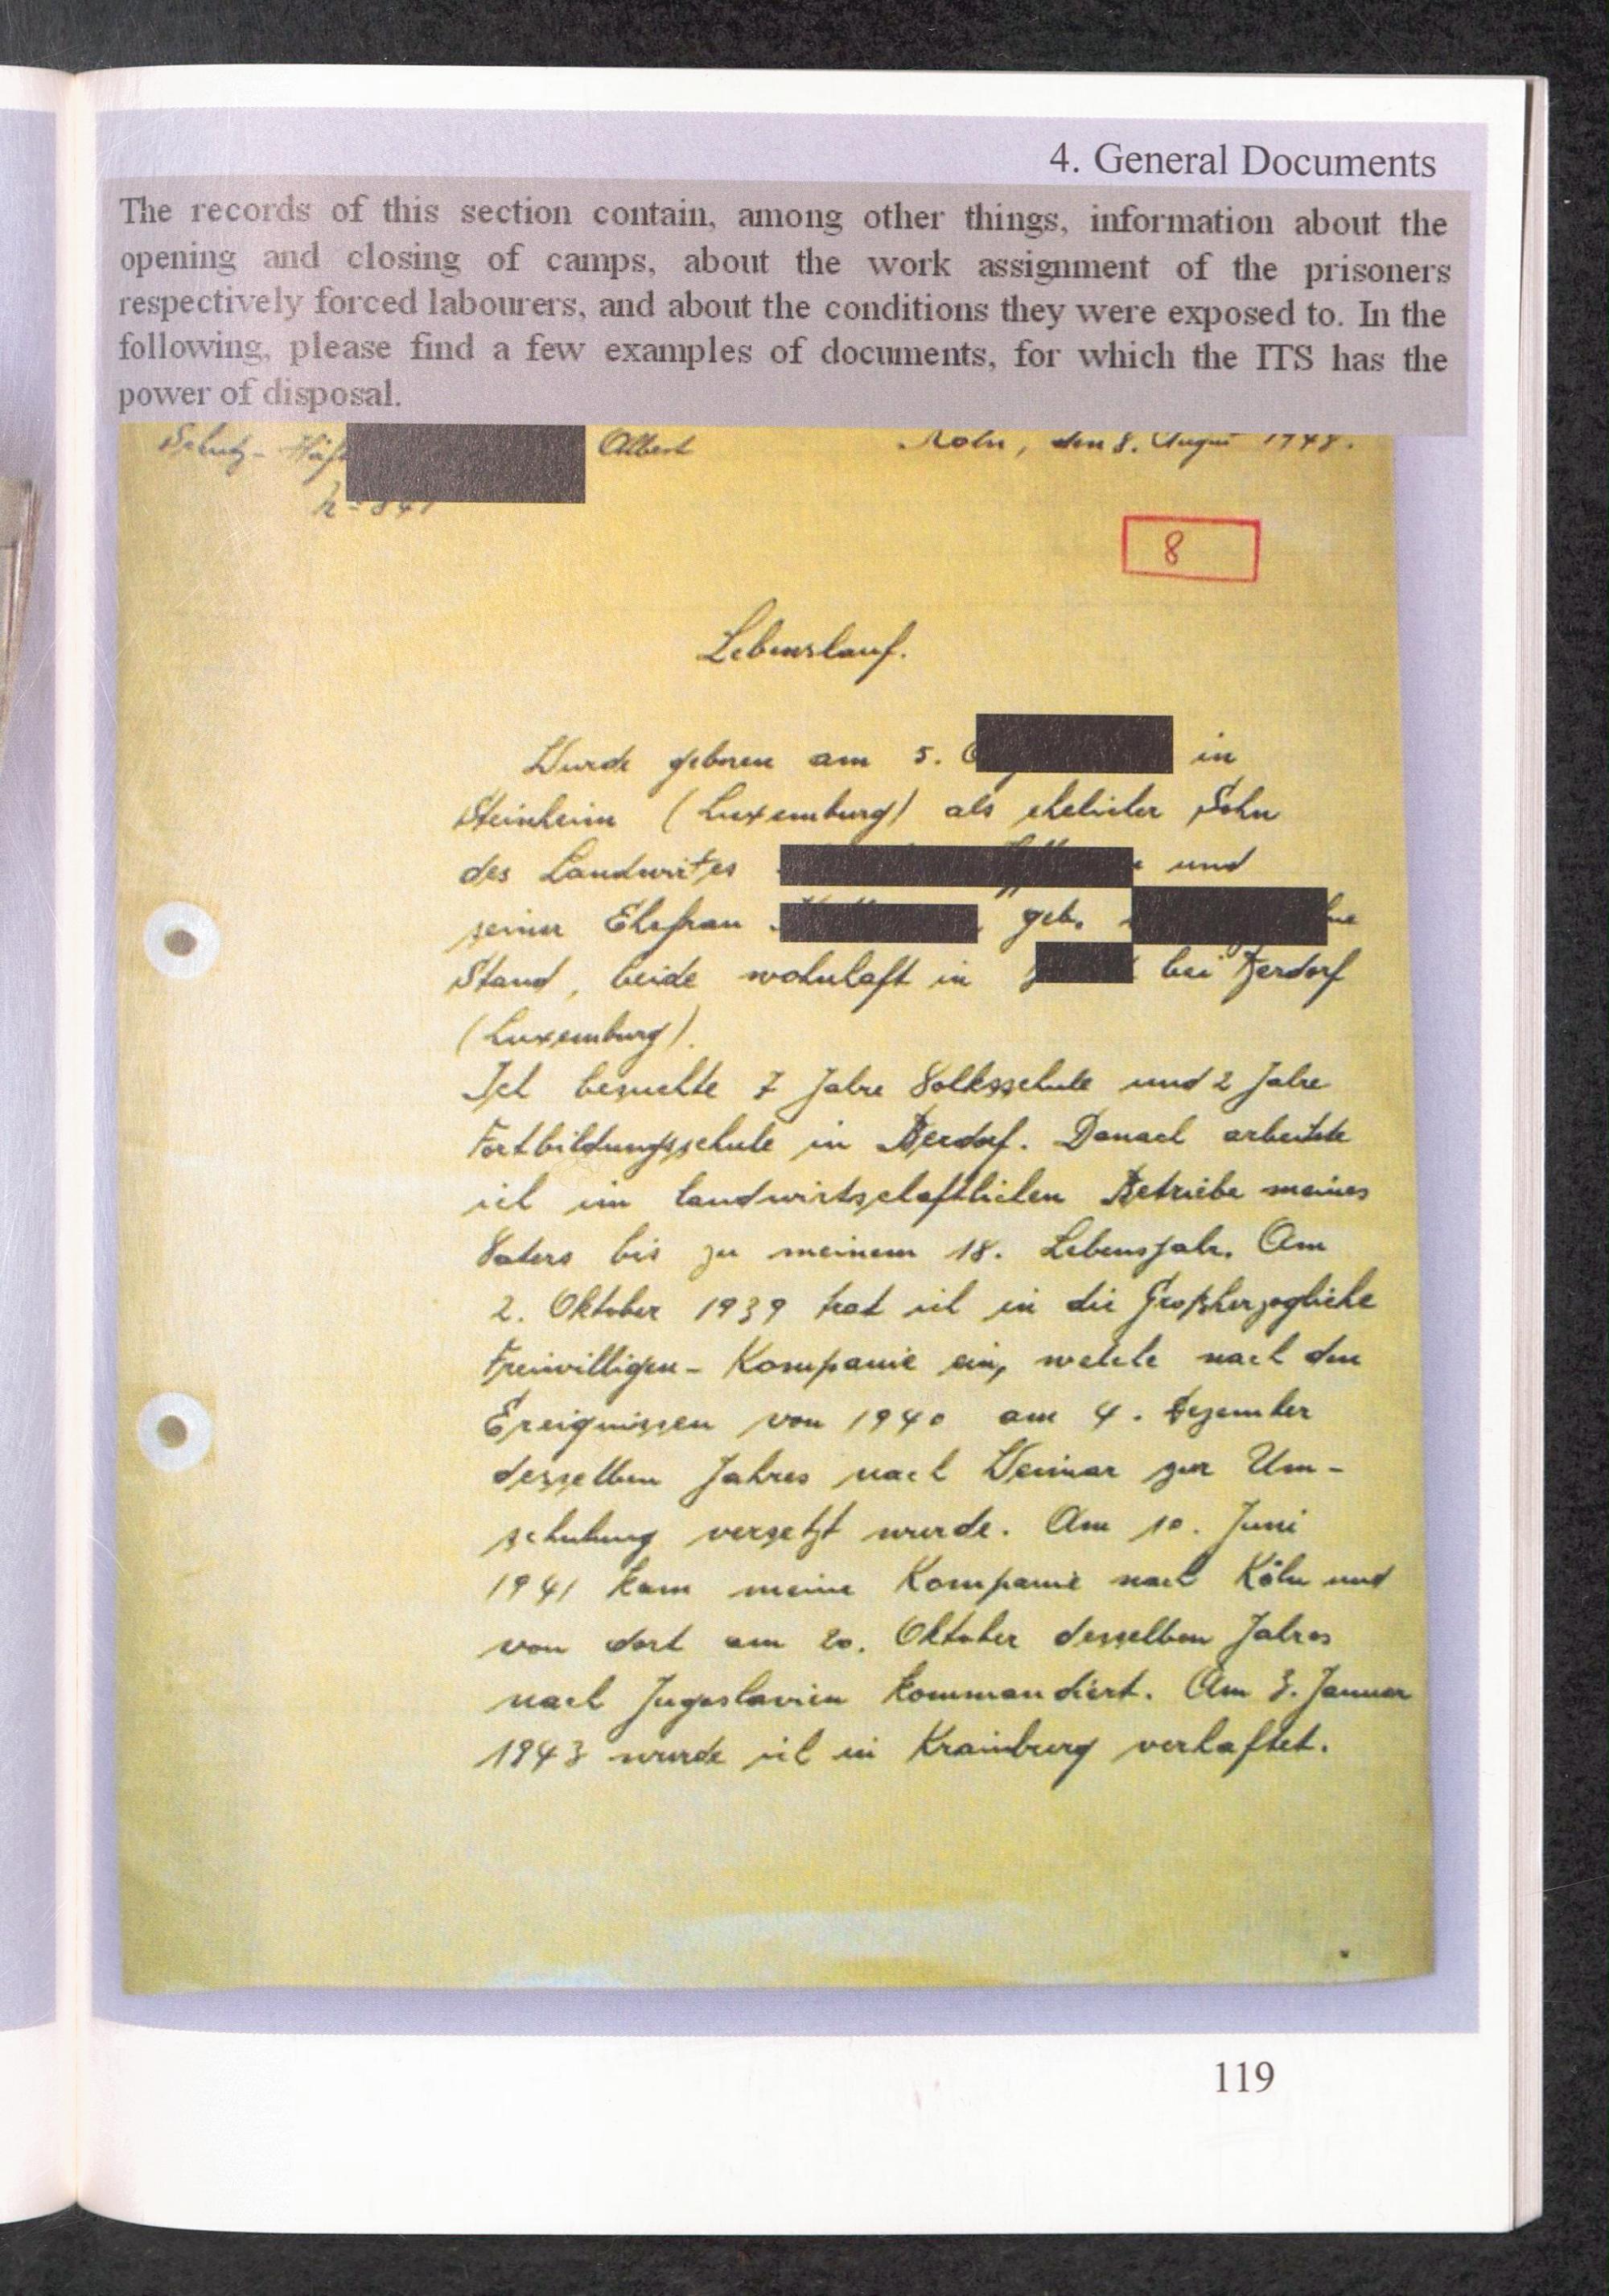 4. General Documents
The records of this section contain, among other things, information about the
opening and closing of camps, about the work assignment of the prisoners
respectively forced labourers, and about the conditions they were exposed to. In the
following, please find a few examples of documents, for which the ITS has the
power of disposal.
Schutz- Albert Köln, den 8. August
8
Lebenslauf.
Wurde geboren am 5. in
Steinheim (Luxemburg) als ehelicher Sohn
des Landwirtes und
seiner Ehefrau geb.
Stand, beide wohnhaft in bei Berdorf
(Luxemburg).
Ich besuchte 7 Jahre Volksschule und 2 Jahre
Fortbildungsschule in Berdorf. Danach arbeitete
ich im landwirtschaftlichen Betriebe meines
Vaters bis zu meinem 18. Lebensjahr. Am
2. Oktober 1939 trat ich in die Großherzogliche
Freiwilligen- Kompanie ein, welche nach den
Ereignissen von 1940 am 4. Dezember
desselben Jahres nach Weimar zur Um-
schulung versetzt wurde. Am 10. Juni
1941 kam meine Kompanie nach Köln und
von dort am 20. Oktober desselben Jahres
nach Jugoslavien kommandiert. Am 3. Januar
1943 wurde ich in Krainburg verhaftet.
119